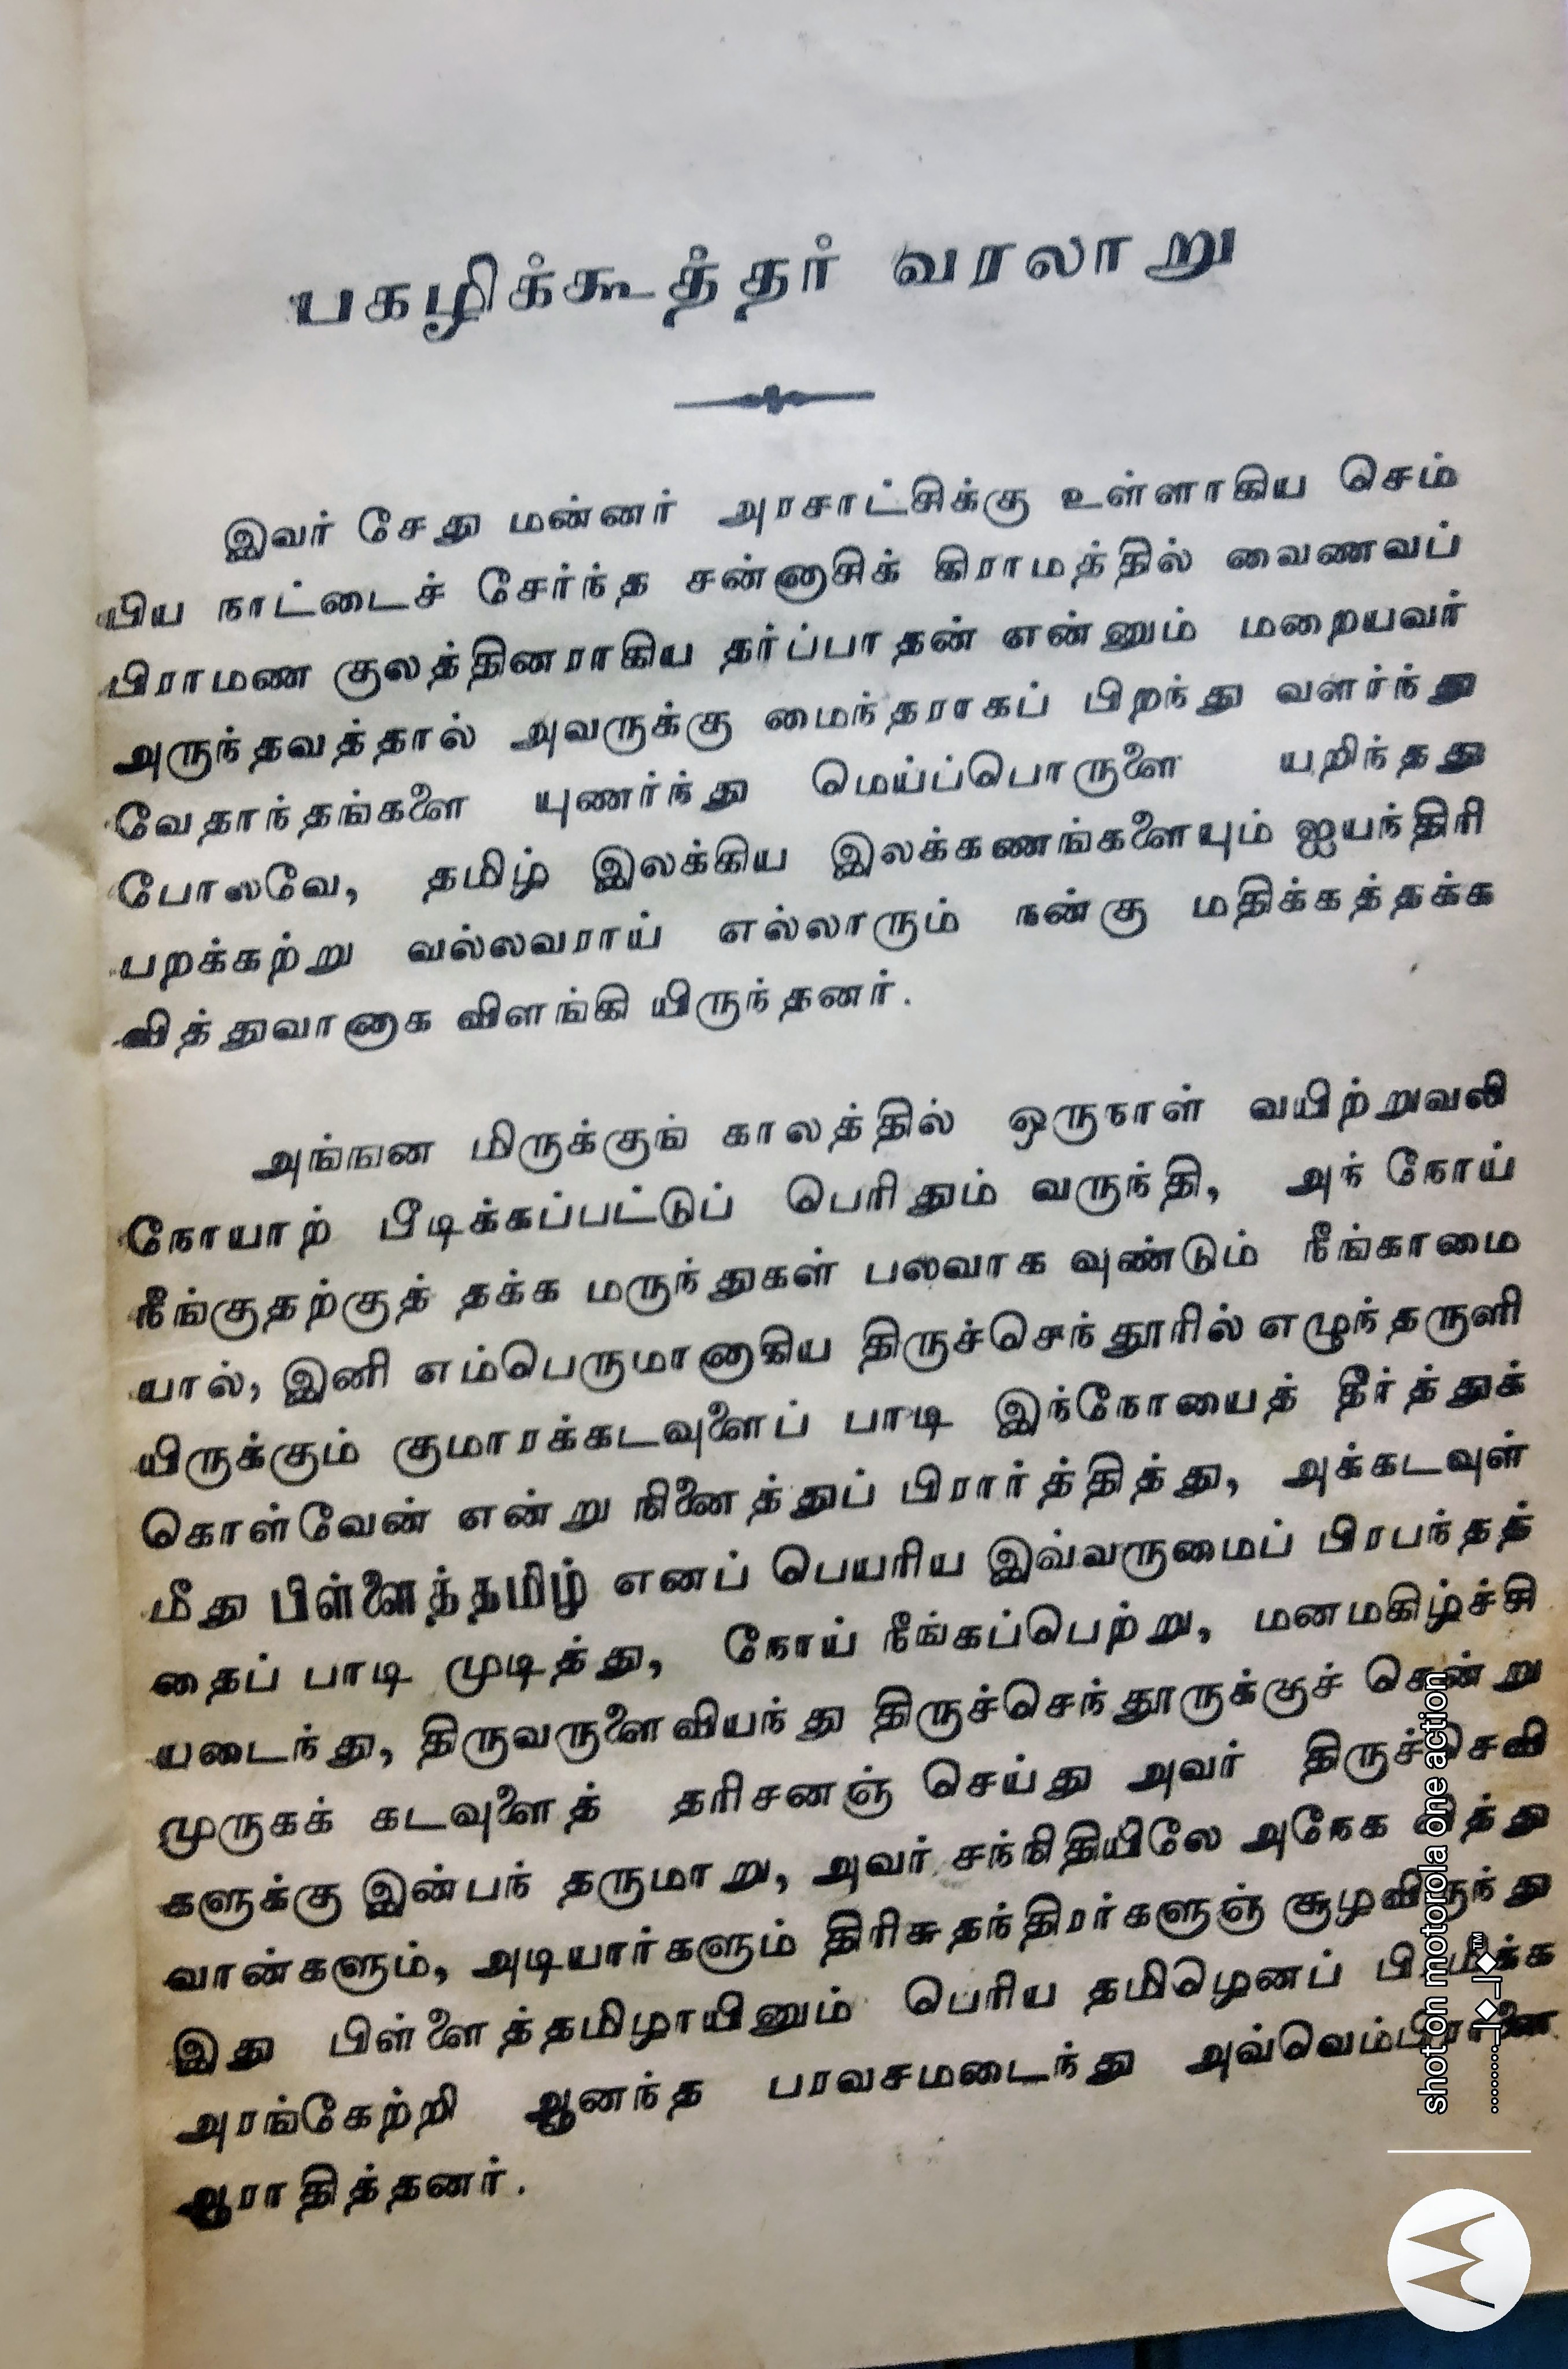 பகழிக்கூத்தர் வரலாறு
இவர் சேது மன்னர் அரசாட்சிக்கு உள்ளாகிய செம்
பிய நாட்டைச் சேர்ந்த சன்னாசிக் கிராமத்தில் வைணவப்
பிராமண குலத்தினராகிய தர்ப்பாதன் என்னும் மறையவர்
அருந்தவத்தால் அவருக்கு மைந்தராகப் பிறந்து வளர்ந்து
வேதாந்தங்களை யுணர்ந்து மெய்ப்பொருளை யறிந்தது
போலவே, தமிழ் இலக்கிய இலக்கணங்களையும் ஐயந்திரி
பறக்கற்று வல்லவராய் எல்லாரும் நன்கு மதிக்கத்தக்க
வித்துவானாக விளங்கி யிருந்தனர்.
அங்ஙன மிருக்குங் காலத்தில் ஒருநாள் வயிற்றுவலி
நோயாற் பீடிக்கப்பட்டுப் பெரிதும் வருந்தி, அந் நோய்
நீங்குதற்குத் தக்க மருந்துகள் பலவாக வுண்டும் நீங்காமை
யால், இனி எம்பெருமானாகிய திருச்செந்தூரில் எழுந்தருளி
யிருக்கும் குமாரக்கடவுளைப் பாடி இந்நோயைத் தீர்த்துக்
கொள்வேன் என்று நினைத்துப் பிரார்த்தித்து, அக்கடவுள்
மீது பிள்ளைத்தமிழ் எனப் பெயரிய இவ்வருமைப் பிரபந்தத்
தைப் பாடி முடித்து, நோய் நீங்கப்பெற்று, மனமகிழ்ச்சி
யடைந்து, திருவருளைவியந்து திருச்செந்தூருக்குச் சென்று
முருகக் கடவுளைத் தரிசனஞ் செய்து அவர் திருச்செவி
களுக்கு இன்பந் தருமாறு, அவர் சந்நிதியிலே அநேக வித்து
வான்களும், அடியார்களும் திரிசுதந்திரர்களுஞ் சூழவிருந்து
இது பிள்ளைத்தமிழாயினும் பெரிய தமிழெனப்
அரங்கேற்றி ஆனந்த பரவசமடைந்து அவ்வெம்பிரானை
ஆராதித்தனர்.
shot on motorola one action